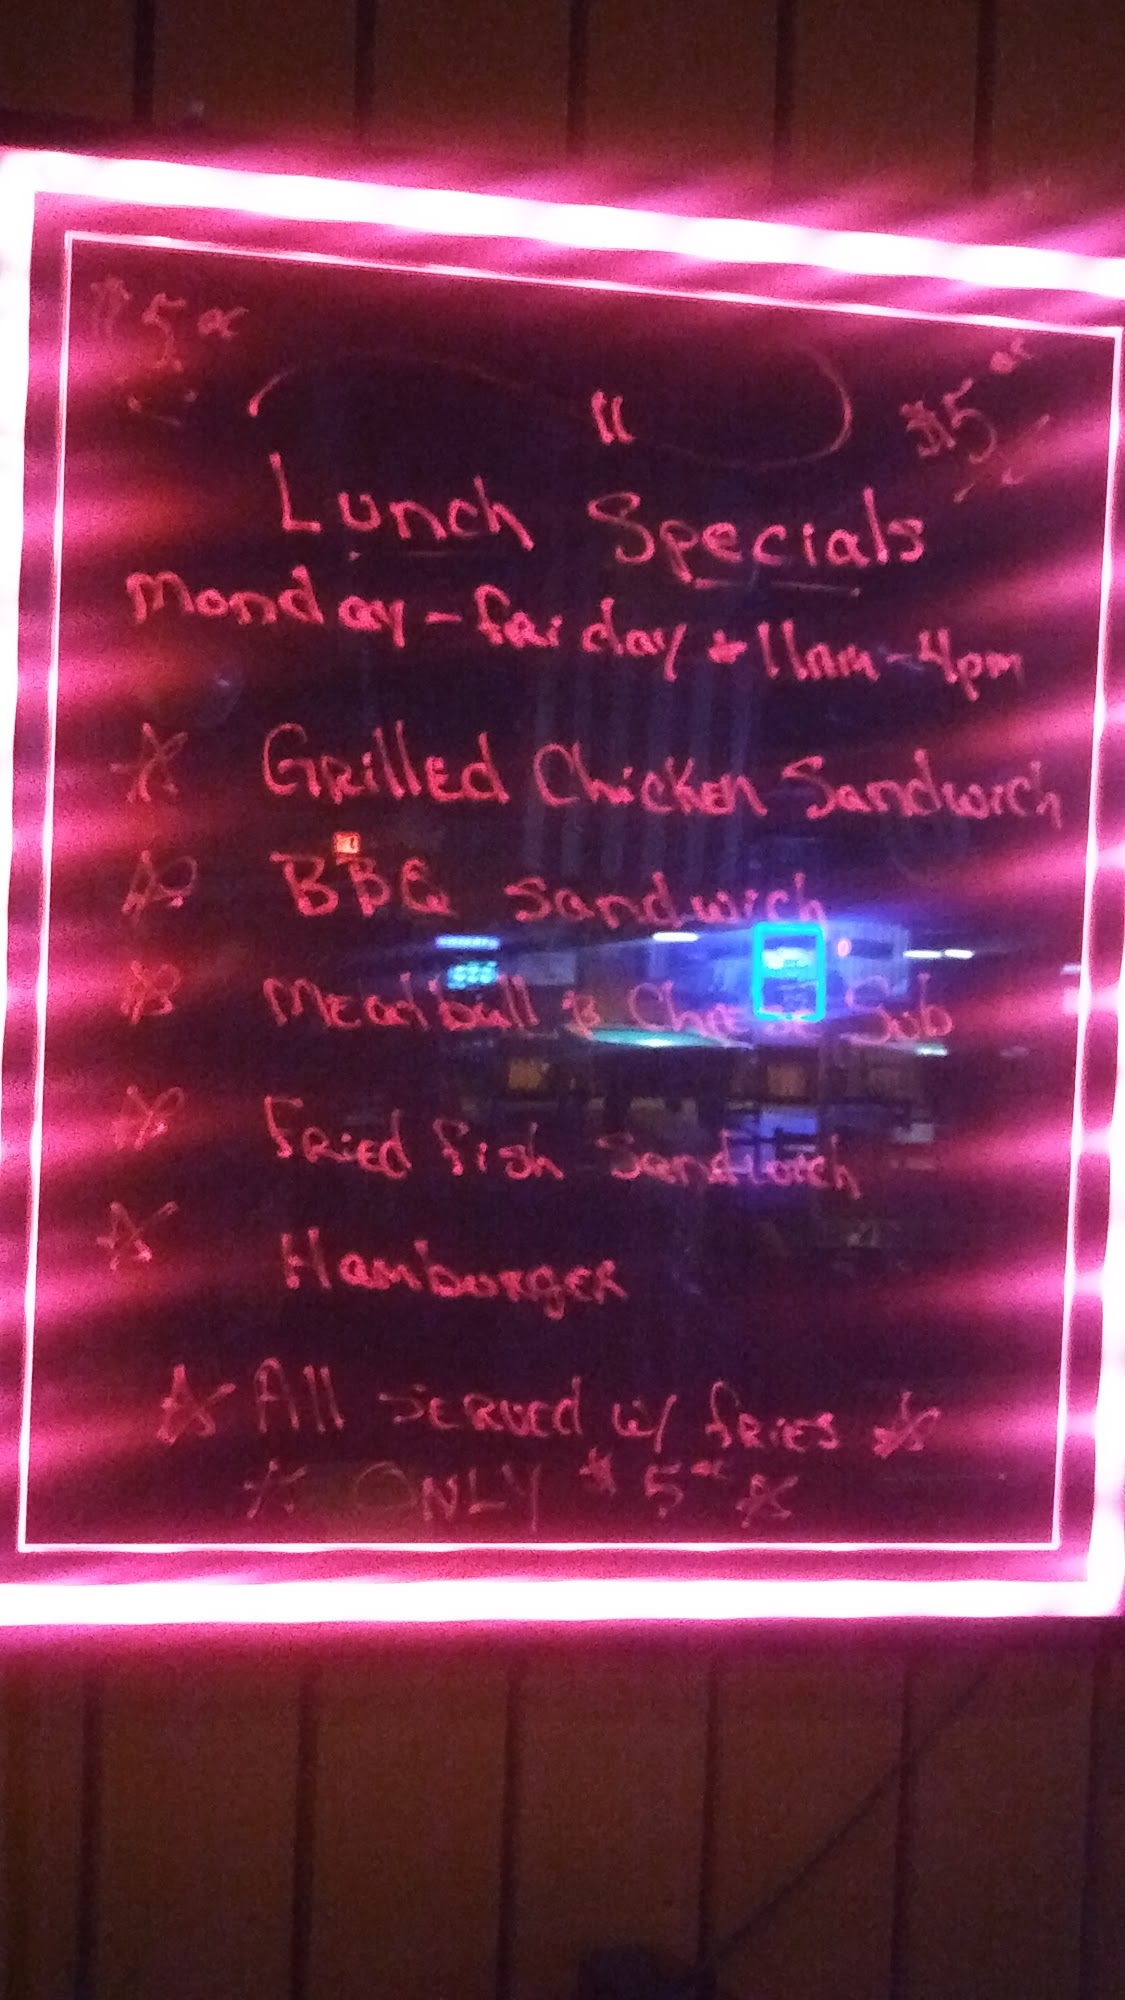 $5 00
$5 00
"
Lunch Specials
Monday - friday * 11am - 4pm
Grilled Chicken Sandwich
BBQ Sandwich
Meatball & Cheese Sub
Fried fish Sandwich
Hamburger
All served w/ fries
ONLY $5 00